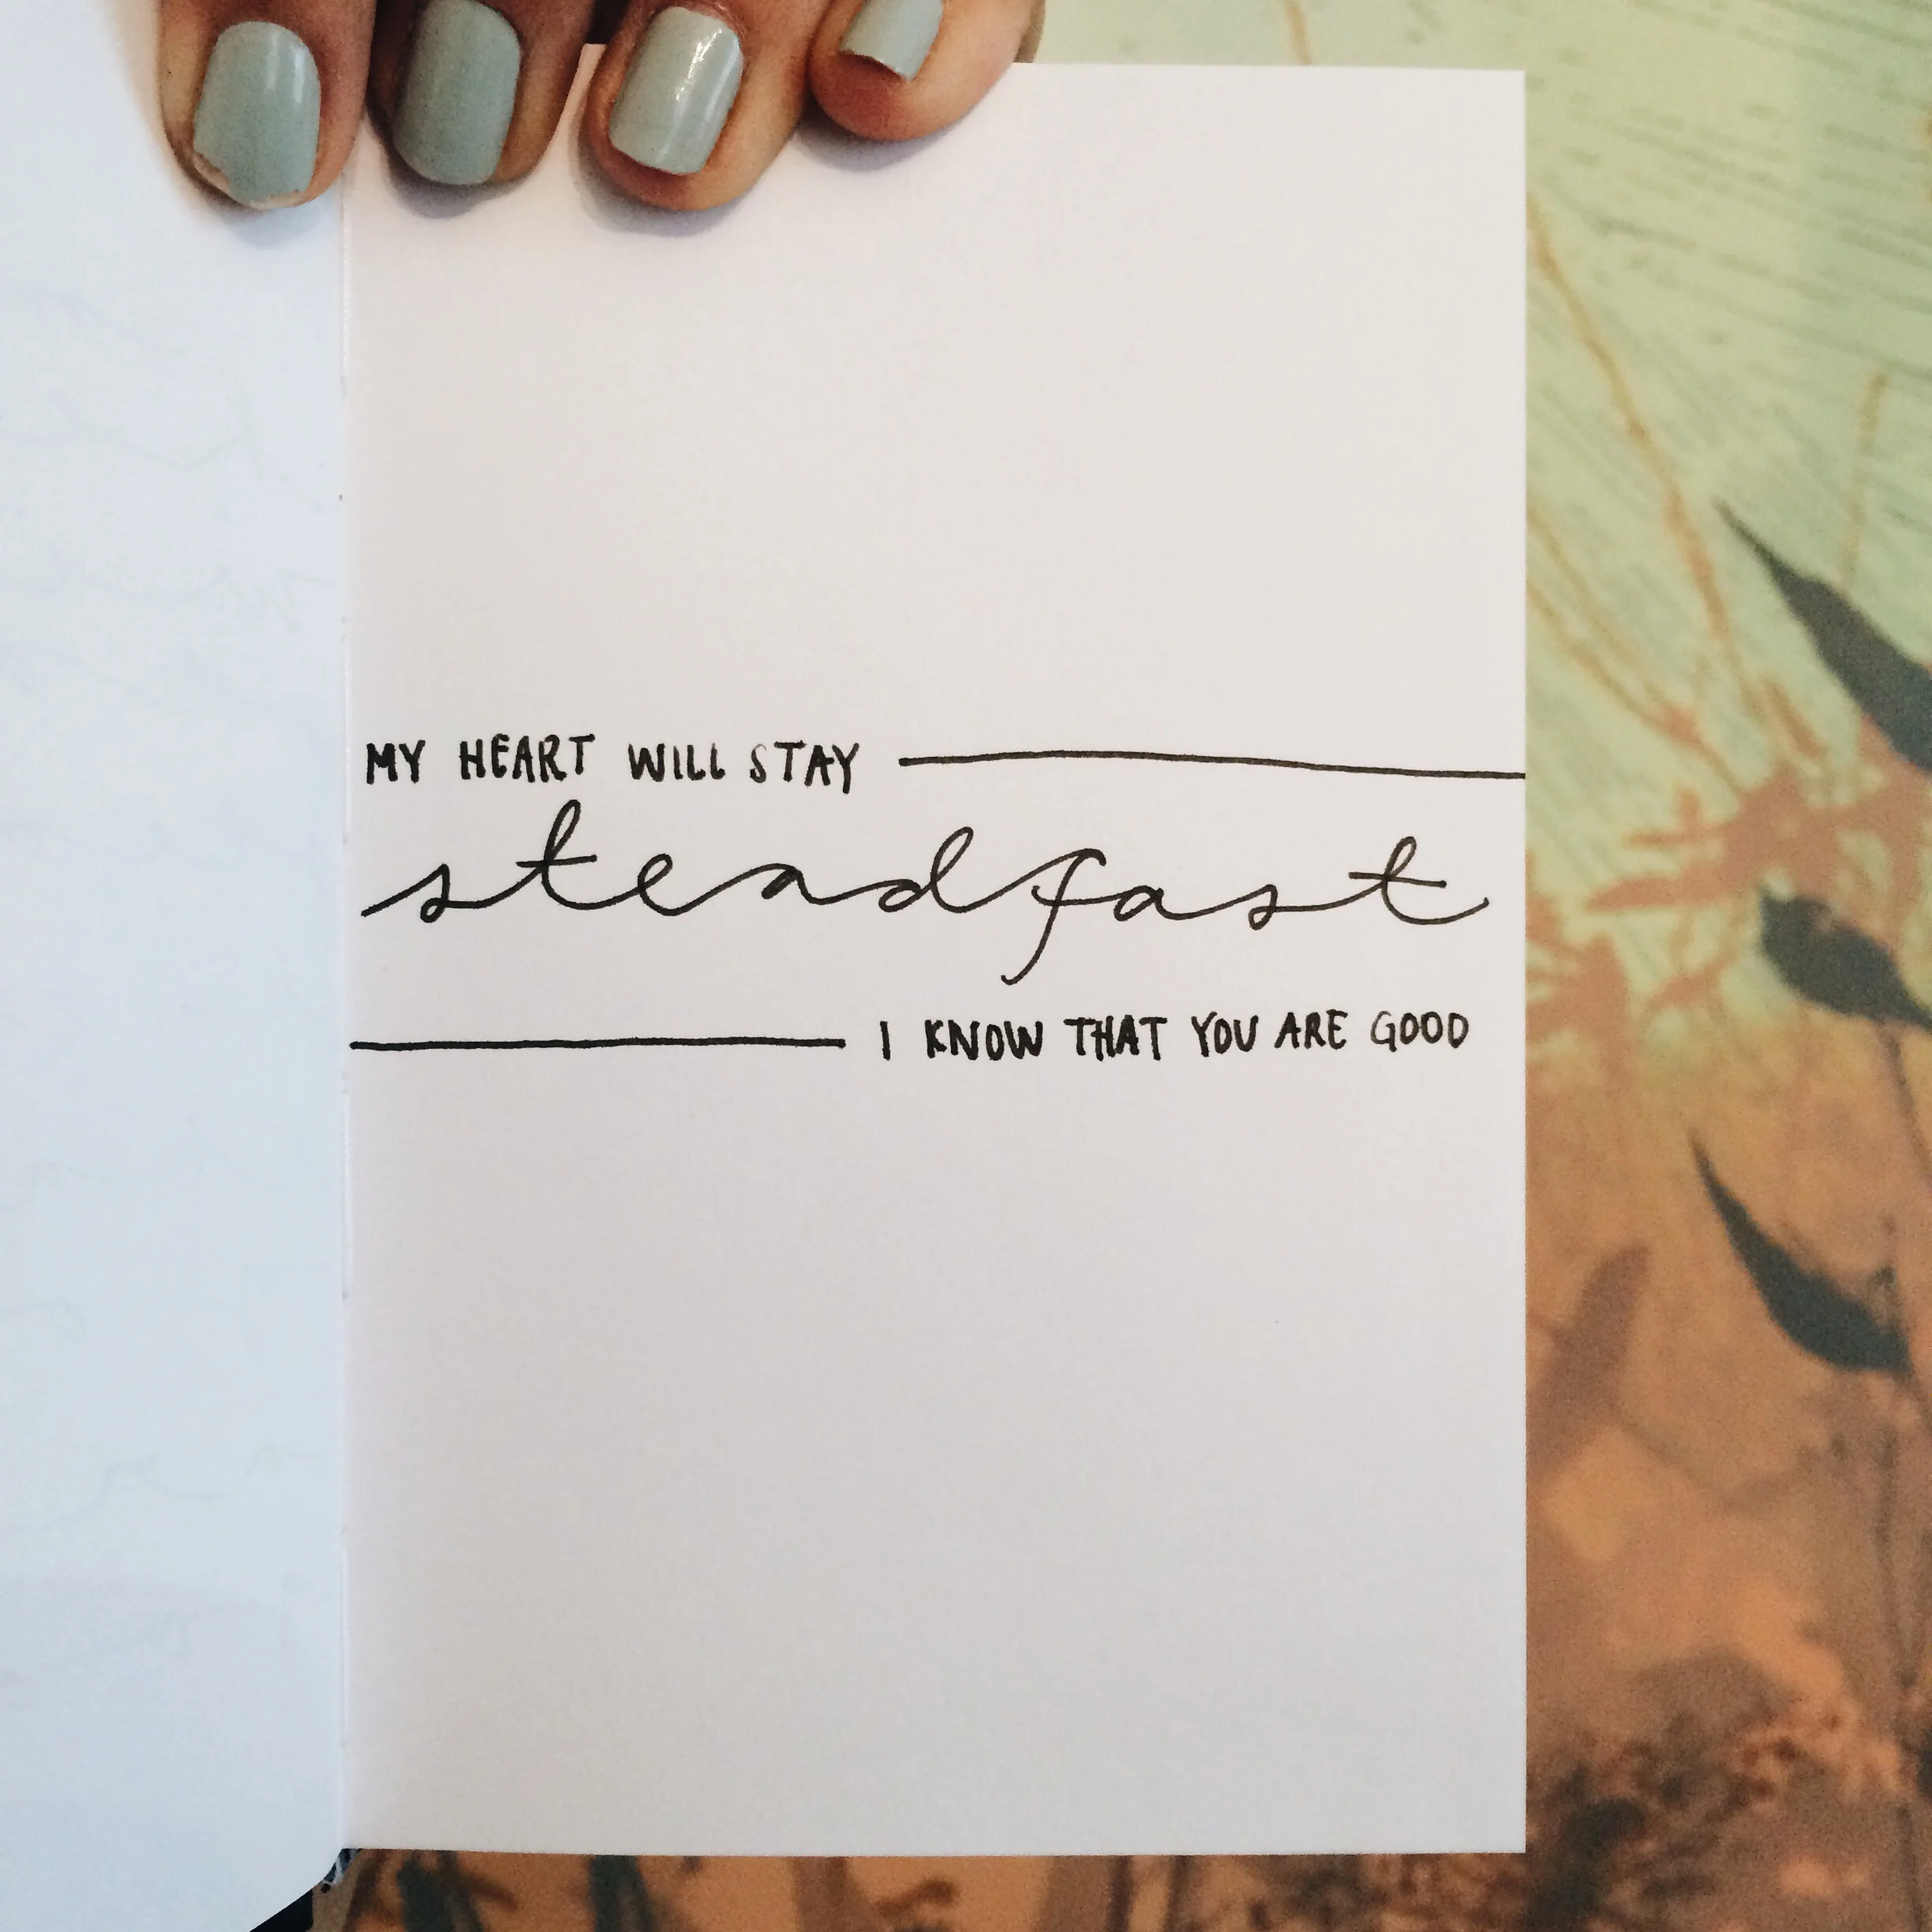 MY HEART WILL STAY
steadfast
I KNOW THAT YOU ARE GOOD